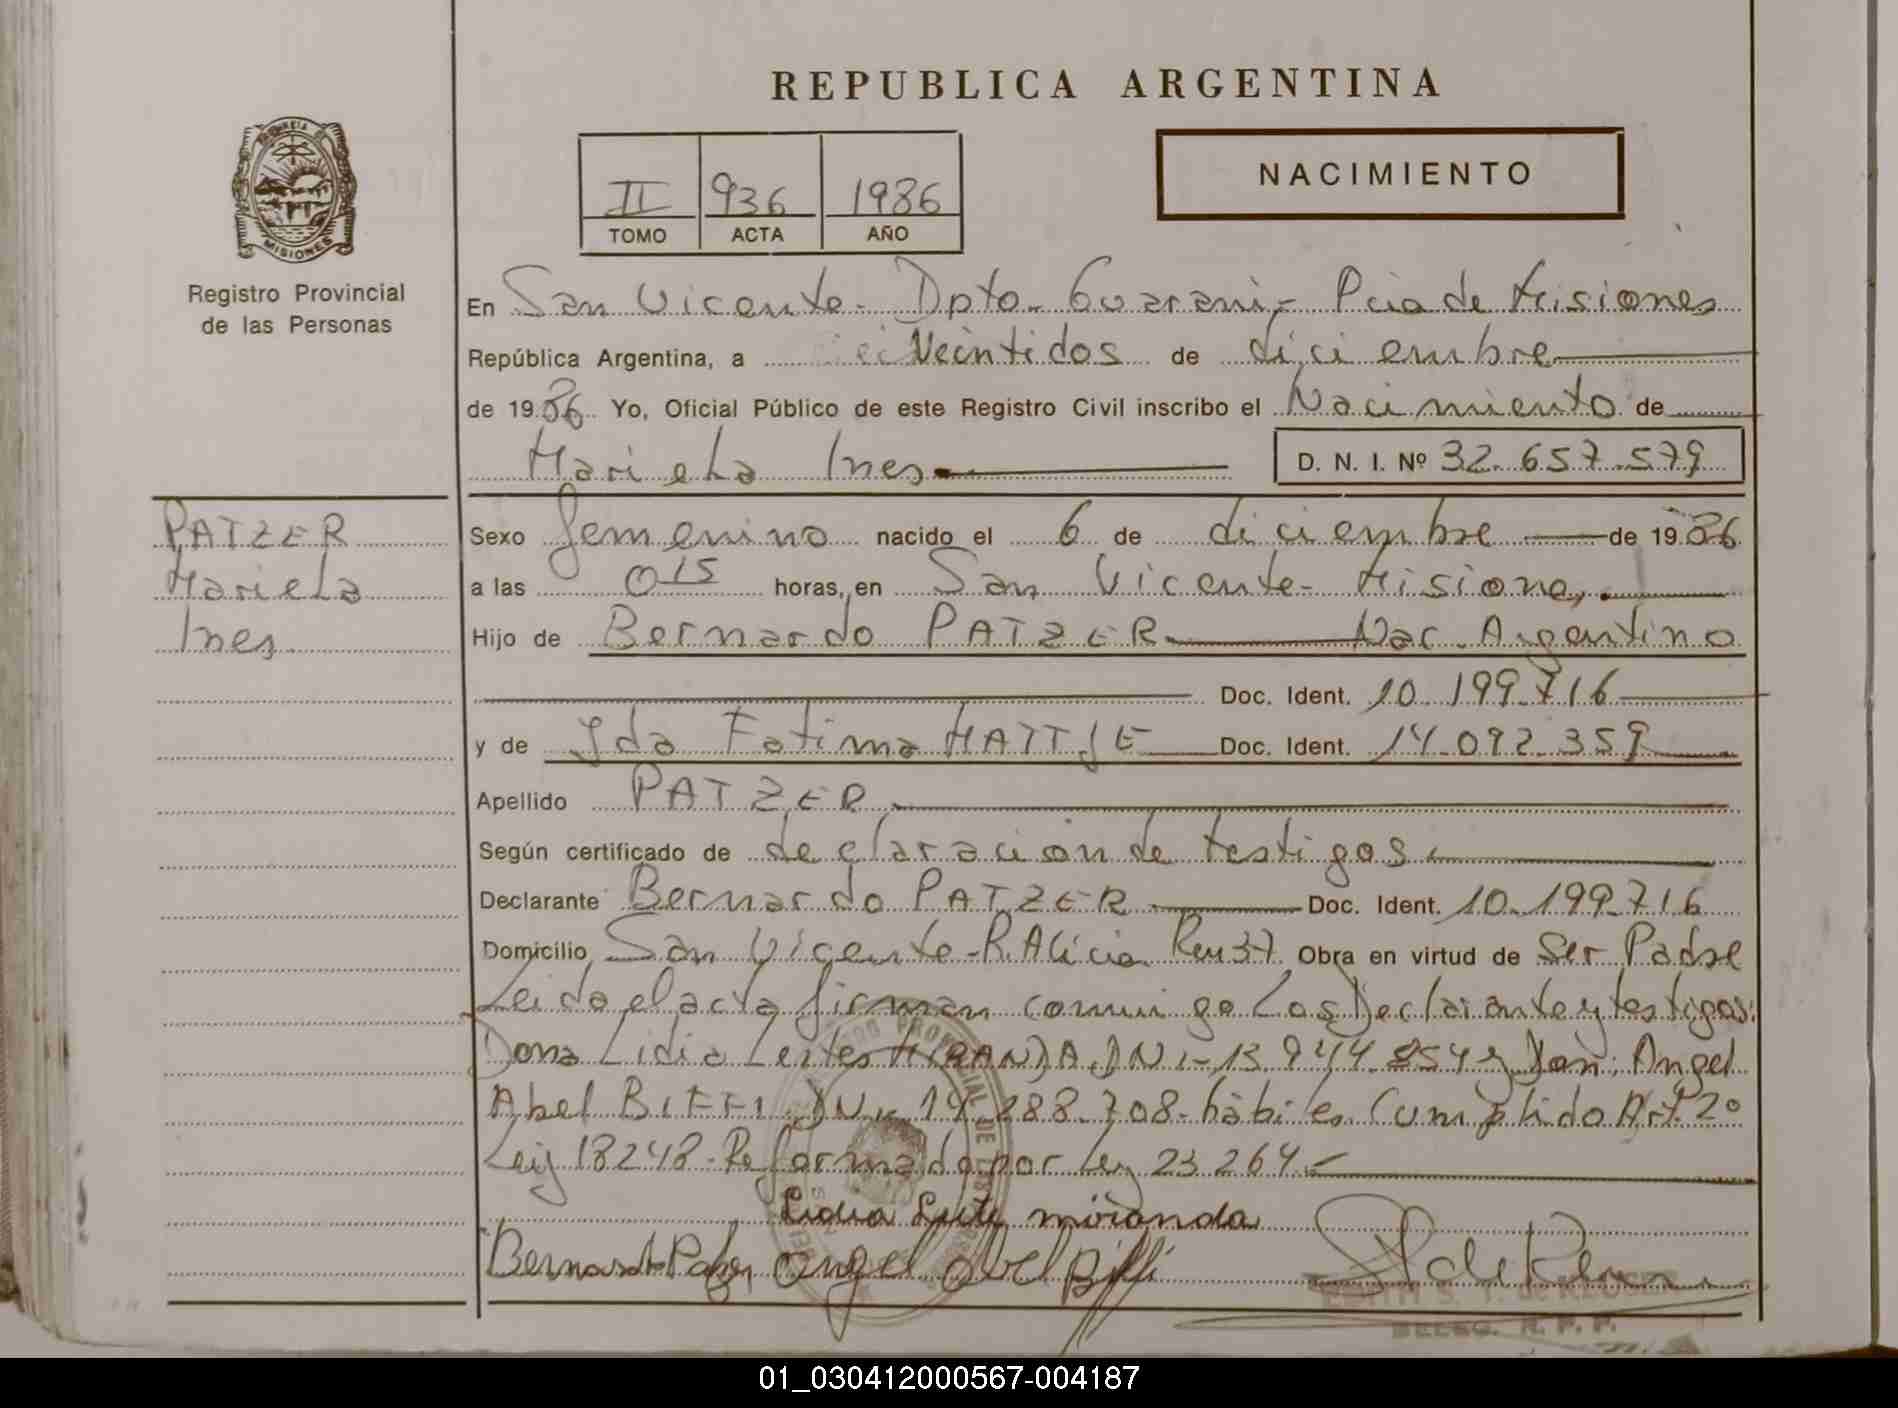 REPUBLICA ARGENTINA
PROVINCIA DE
MISIONES
Registro Provincial
de las Personas
II 936 1986
TOMO ACTA AÑO
NACIMIENTO
En San Vicente - Dpto - Guarani - Pcia de Misiones
República Argentina, a Veintidos de diciembre
de 1986 Yo, Oficial Público de este Registro Civil inscribo el Nacimiento de
Mariela Ines D. N. I. Nº 32.657.579
PATZER
Mariela
Ines
Sexo femenino nacido el 6 de diciembre de 1986
a las 0 15 horas, en San Vicente - Misiones
Hijo de Bernardo PATZER Nac. Argentino
Doc. Ident. 10.199.716
y de Yda Fatima MATTJE Doc. Ident. 14.092.359
Apellido PATZER
Según certificado de declaracion de testigos
Declarante Bernardo PATZER Doc. Ident. 10.199.716
Domicilio San Vicente - R. Alicia Km 37 Obra en virtud de Ser Padre
Leida el acta firman conmigo Los Declarante y testigos:
Dona Lidia MIRANDA DNI - 13.944.854 y Don: Angel
Abel BIFFI DNI - 14.288.708 - habiles. Cumplido Art. 2º
Ley 18248 - Reformado por Ley 23264
Lidia miranda
Bernardo Angel Abel Biffi
DELEG. R. P. P.
01_030412000567-004187